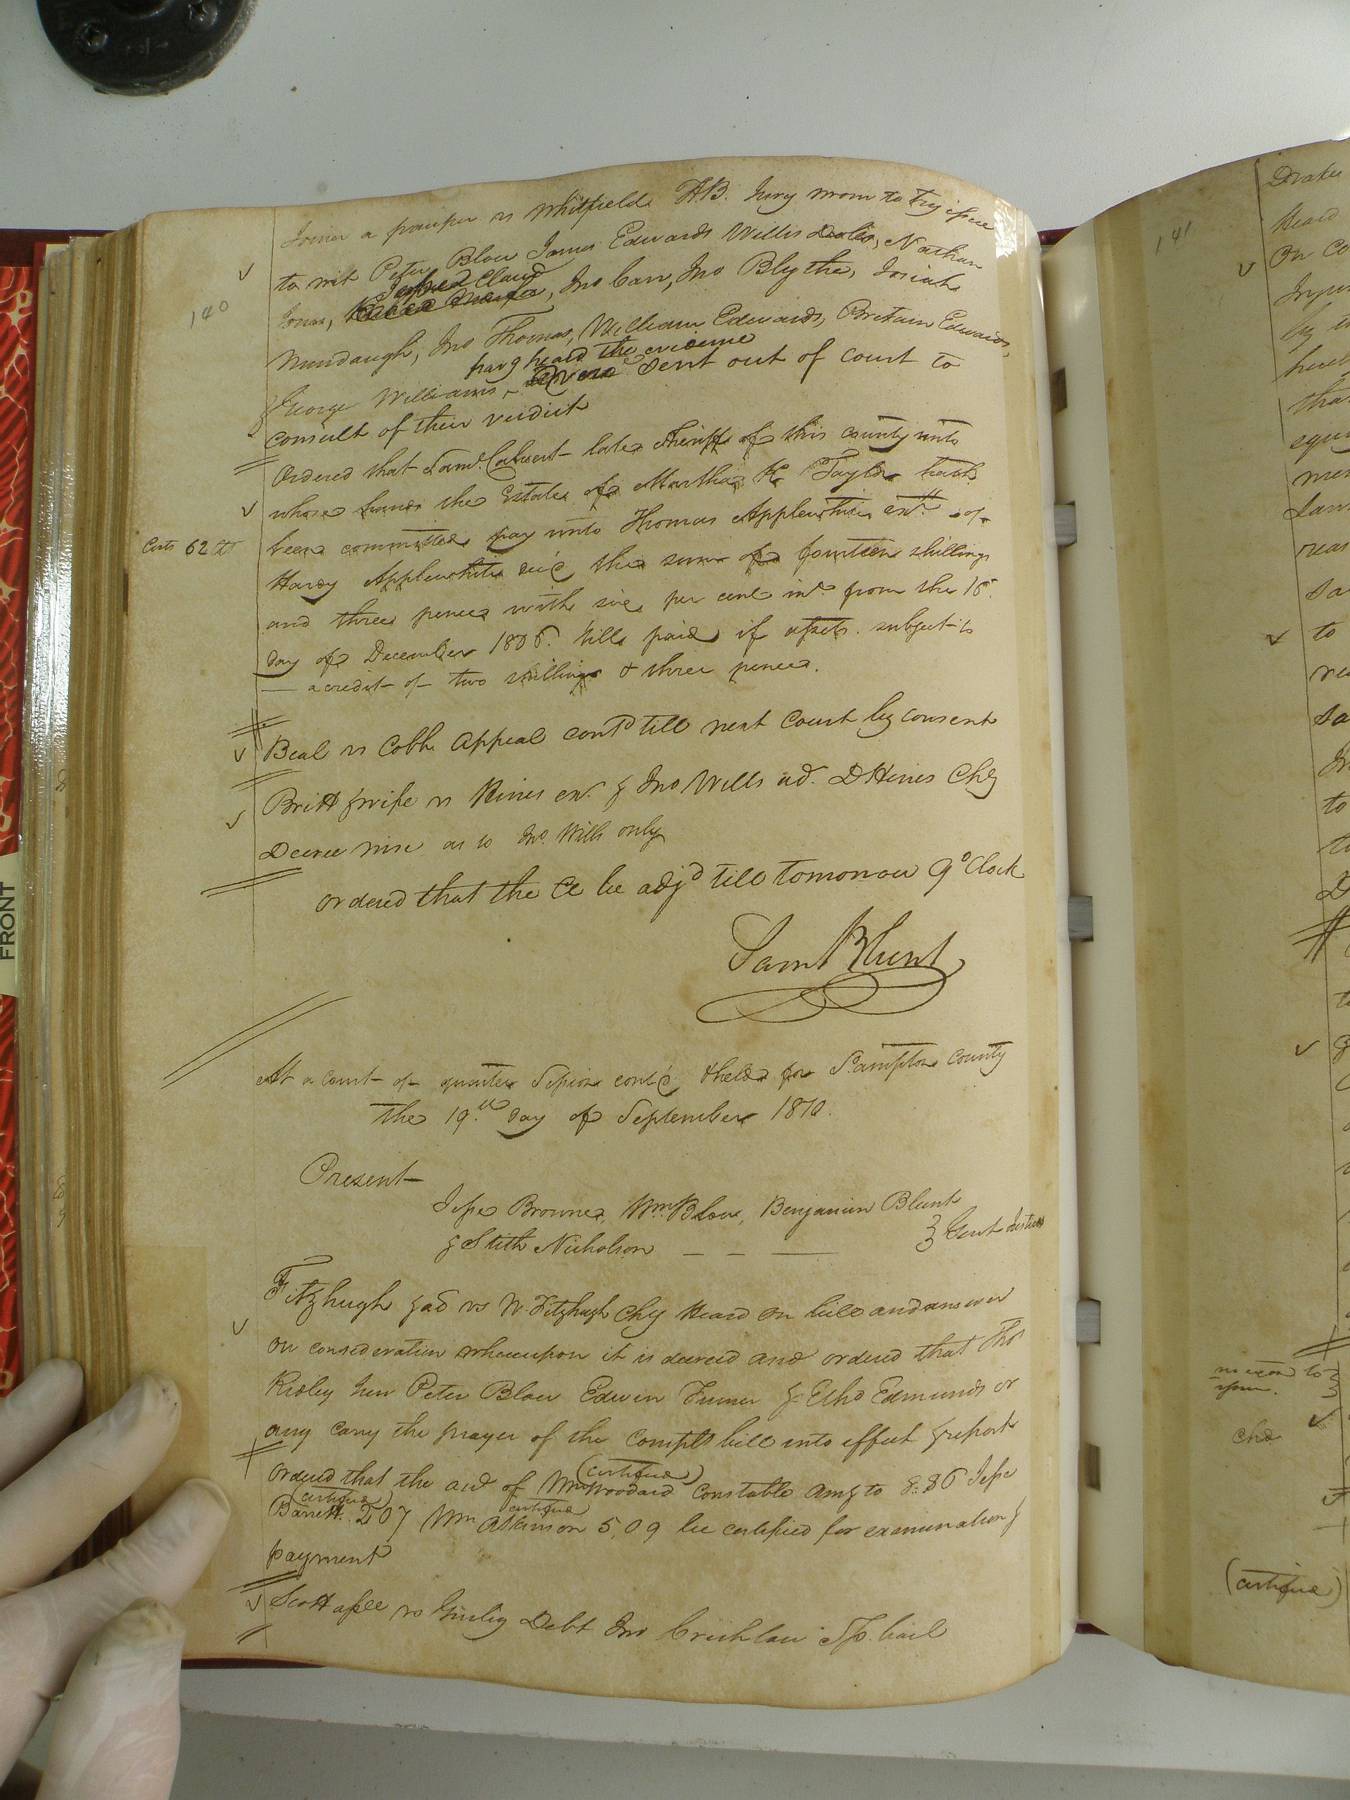 140
Joiner a pauper vs Whitfield A.B. Jury sworn to try issue
to wit Peter Blow James Edwards Willis Nathan
Jones, Jno Carr, Jno Blythe, Josiah
Mundaugh, Jno Thomas, William Edwards, Britain Edwards,
havg heard the evidence
& George Williams, sent out of court to
consult of their verdict
Ordered that Saml. Calvert late Sheriff of this county unto
whose hands the Estate of Martha H Taylor hath
Costs 62 cts
been committed pay unto Thomas Applewhite exr. of
Hardy Applewhite dec'd the sum of fourteen shillings
and three pence with six per cent int. from the 15
day of December 1806. till paid if assets. subject to
— a credit of two shillings & three pence.
Beal vs Cobb Appeal contd till next Court by consent
Britt & wife vs Hines exr. & Jno Wells ad. D Hines Chy
Decree nise as to Jno. Wills only
Ordered that the Ct be adjd till tomorrow 9 oClock
Saml Blunt
At a court of quarter Session cont'd & held for S.ampton County
the 19.th day of September 1810.
Present
Jesse Browne, Wm Blow, Benjamin Blunt
& Stith Nicholson — — — } Gent Justices
Fitzhugh & ad vs W. Fitzhugh Chy Heard on bill and answer
on consideration whereupon it is decreed and ordered that Thos
Ridley Junr Peter Blow Edwin Turner & Etho Edmunds or
any carry the prayer of the Complts bill into effect & report
(certified)
Ordered that the acd of Wm Woodard Constable amg to 8.86 Jesse
(certified) certified
Barrett 2.07 Wm Atkinson 5,09 be certified for examination &
payment
Scott assee vs Gurley Debt Jno Crichlow Sp. bail
141
Heard
On Co
by
that
to
(certified)